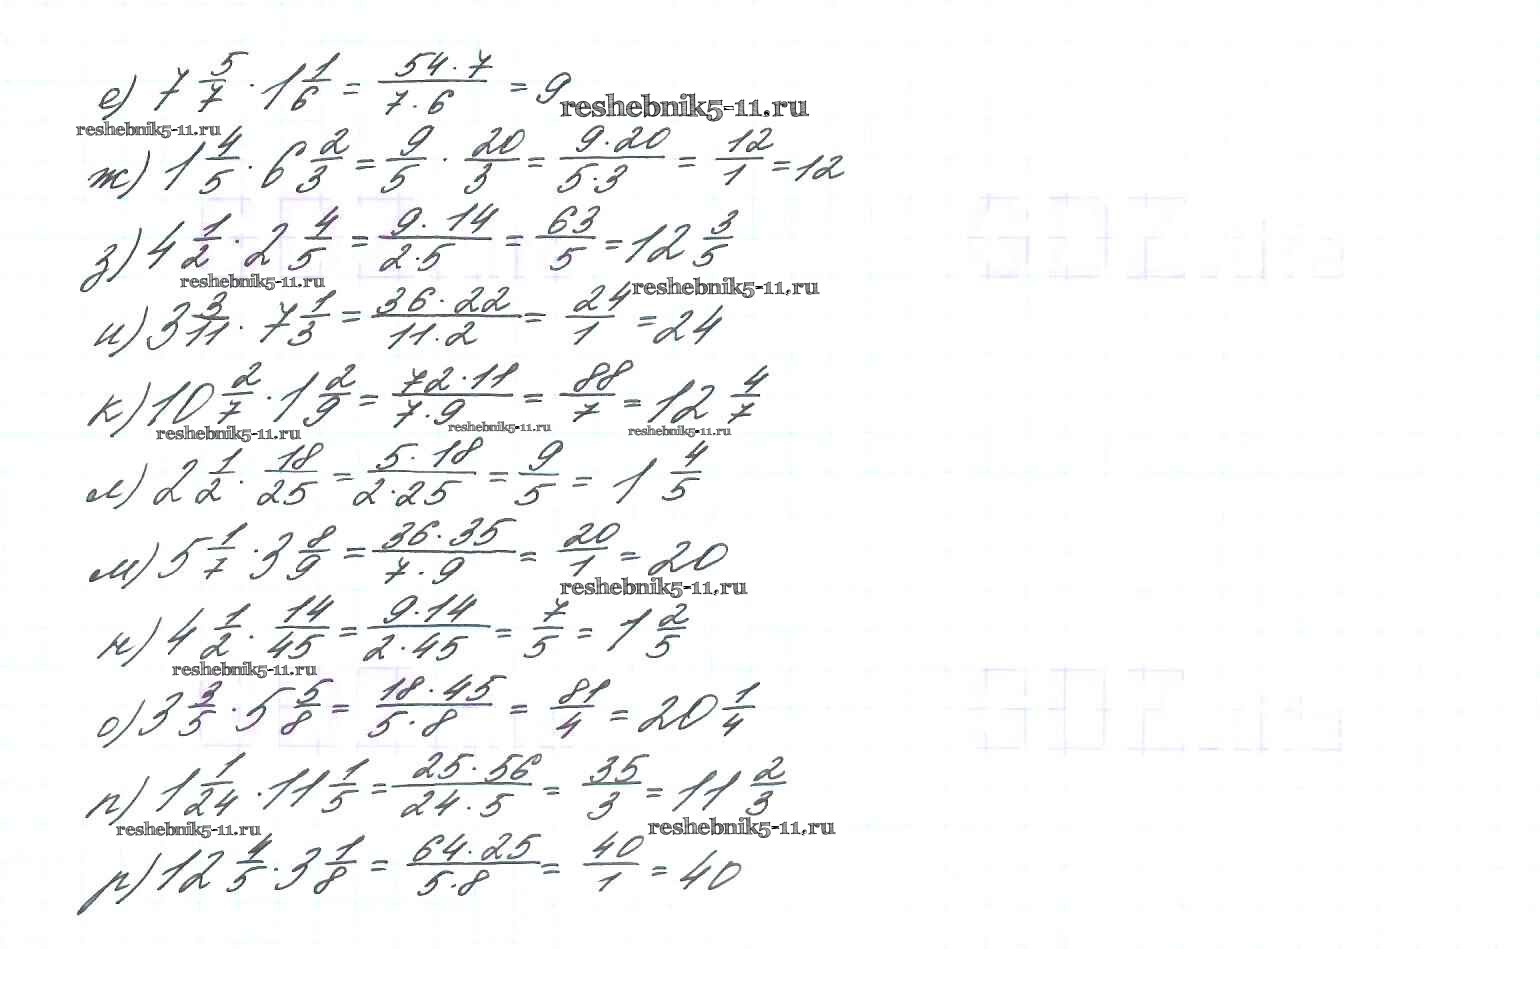 е) 7 5/7 · 1 1/6 = (54 · 7)/(7 · 6) = 9
reshebnik5-11.ru reshebnik5-11.ru
ж) 1 4/5 · 6 2/3 = 9/5 · 20/3 = (9 · 20)/(5 · 3) = 12/1 = 12
з) 4 1/2 · 2 4/5 = (9 · 14)/(2 · 5) = 63/5 = 12 3/5
reshebnik5-11.ru reshebnik5-11.ru
и) 3 3/11 · 7 1/3 = (36 · 22)/(11 · 2) = 24/1 = 24
к) 10 2/7 · 1 2/9 = (72 · 11)/(7 · 9) = 88/7 = 12 4/7
reshebnik5-11.ru reshebnik5-11.ru reshebnik5-11.ru
л) 2 1/2 · 18/25 = (5 · 18)/(2 · 25) = 9/5 = 1 4/5
м) 5 1/7 · 3 8/9 = (36 · 35)/(7 · 9) = 20/1 = 20
reshebnik5-11.ru
н) 4 1/2 · 14/45 = (9 · 14)/(2 · 45) = 7/5 = 1 2/5
reshebnik5-11.ru
о) 3 3/5 · 5 5/8 = (18 · 45)/(5 · 8) = 81/4 = 20 1/4
п) 1 1/24 · 11 1/5 = (25 · 56)/(24 · 5) = 35/3 = 11 2/3
reshebnik5-11.ru reshebnik5-11.ru
р) 12 4/5 · 3 1/8 = (64 · 25)/(5 · 8) = 40/1 = 40